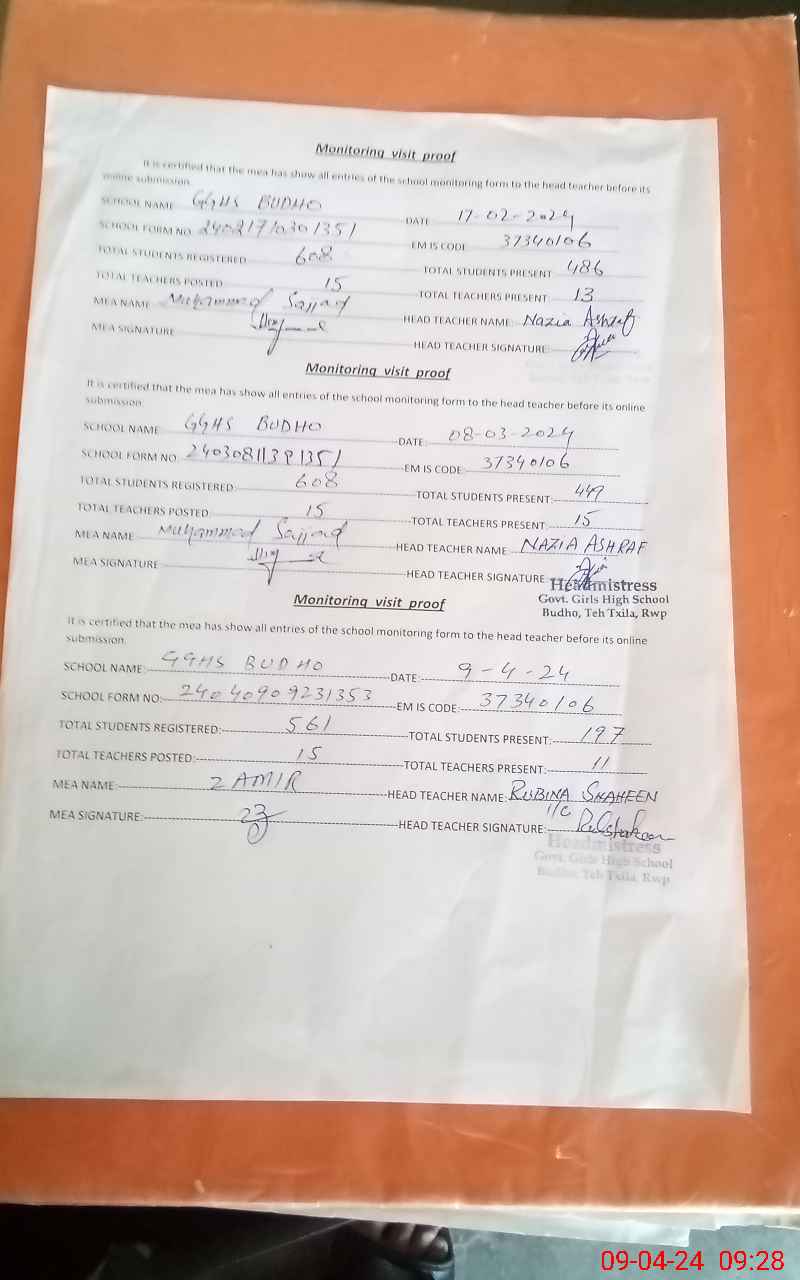 Monitoring visit proof
It is certified that the mea has show all entries of the school monitoring form to the head teacher before its
online submission.
SCHOOL NAME GGHS BUDHO DATE 17-02-2024
SCHOOL FORM NO. EM IS CODE 37340106
TOTAL STUDENTS REGISTERED 608 TOTAL STUDENTS PRESENT 486
TOTAL TEACHERS POSTED 15 TOTAL TEACHERS PRESENT 13
MEA NAME Muhammad Sajjad HEAD TEACHER NAME: Nazia Ashraf
MEA SIGNATURE HEAD TEACHER SIGNATURE:
Monitoring visit proof
It is certified that the mea has show all entries of the school monitoring form to the head teacher before its online
submission.
SCHOOL NAME GGHS BUDHO DATE: 08-03-2024
SCHOOL FORM NO. EM IS CODE: 37340106
TOTAL STUDENTS REGISTERED: 608 TOTAL STUDENTS PRESENT:
TOTAL TEACHERS POSTED: 15 TOTAL TEACHERS PRESENT: 15
MEA NAME Muhammad Sajjad HEAD TEACHER NAME NAZIA ASHRAF
MEA SIGNATURE HEAD TEACHER SIGNATURE
Headmistress
Govt. Girls High School
Budho, Teh Txila, Rwp
Monitoring visit proof
It is certified that the mea has show all entries of the school monitoring form to the head teacher before its online
submission.
SCHOOL NAME: GGHS BUDHO DATE: 9-4-24
SCHOOL FORM NO: 24040909231353 EM IS CODE: 37340106
TOTAL STUDENTS REGISTERED: 561 TOTAL STUDENTS PRESENT: 197
TOTAL TEACHERS POSTED: 15 TOTAL TEACHERS PRESENT: 11
MEA NAME: ZAMIR HEAD TEACHER NAME: RUBINA SHAHEEN
MEA SIGNATURE: HEAD TEACHER SIGNATURE: I/C
Headmistress
Govt. Girls High School
Budho, Teh Txila, Rwp
09-04-24 09:28